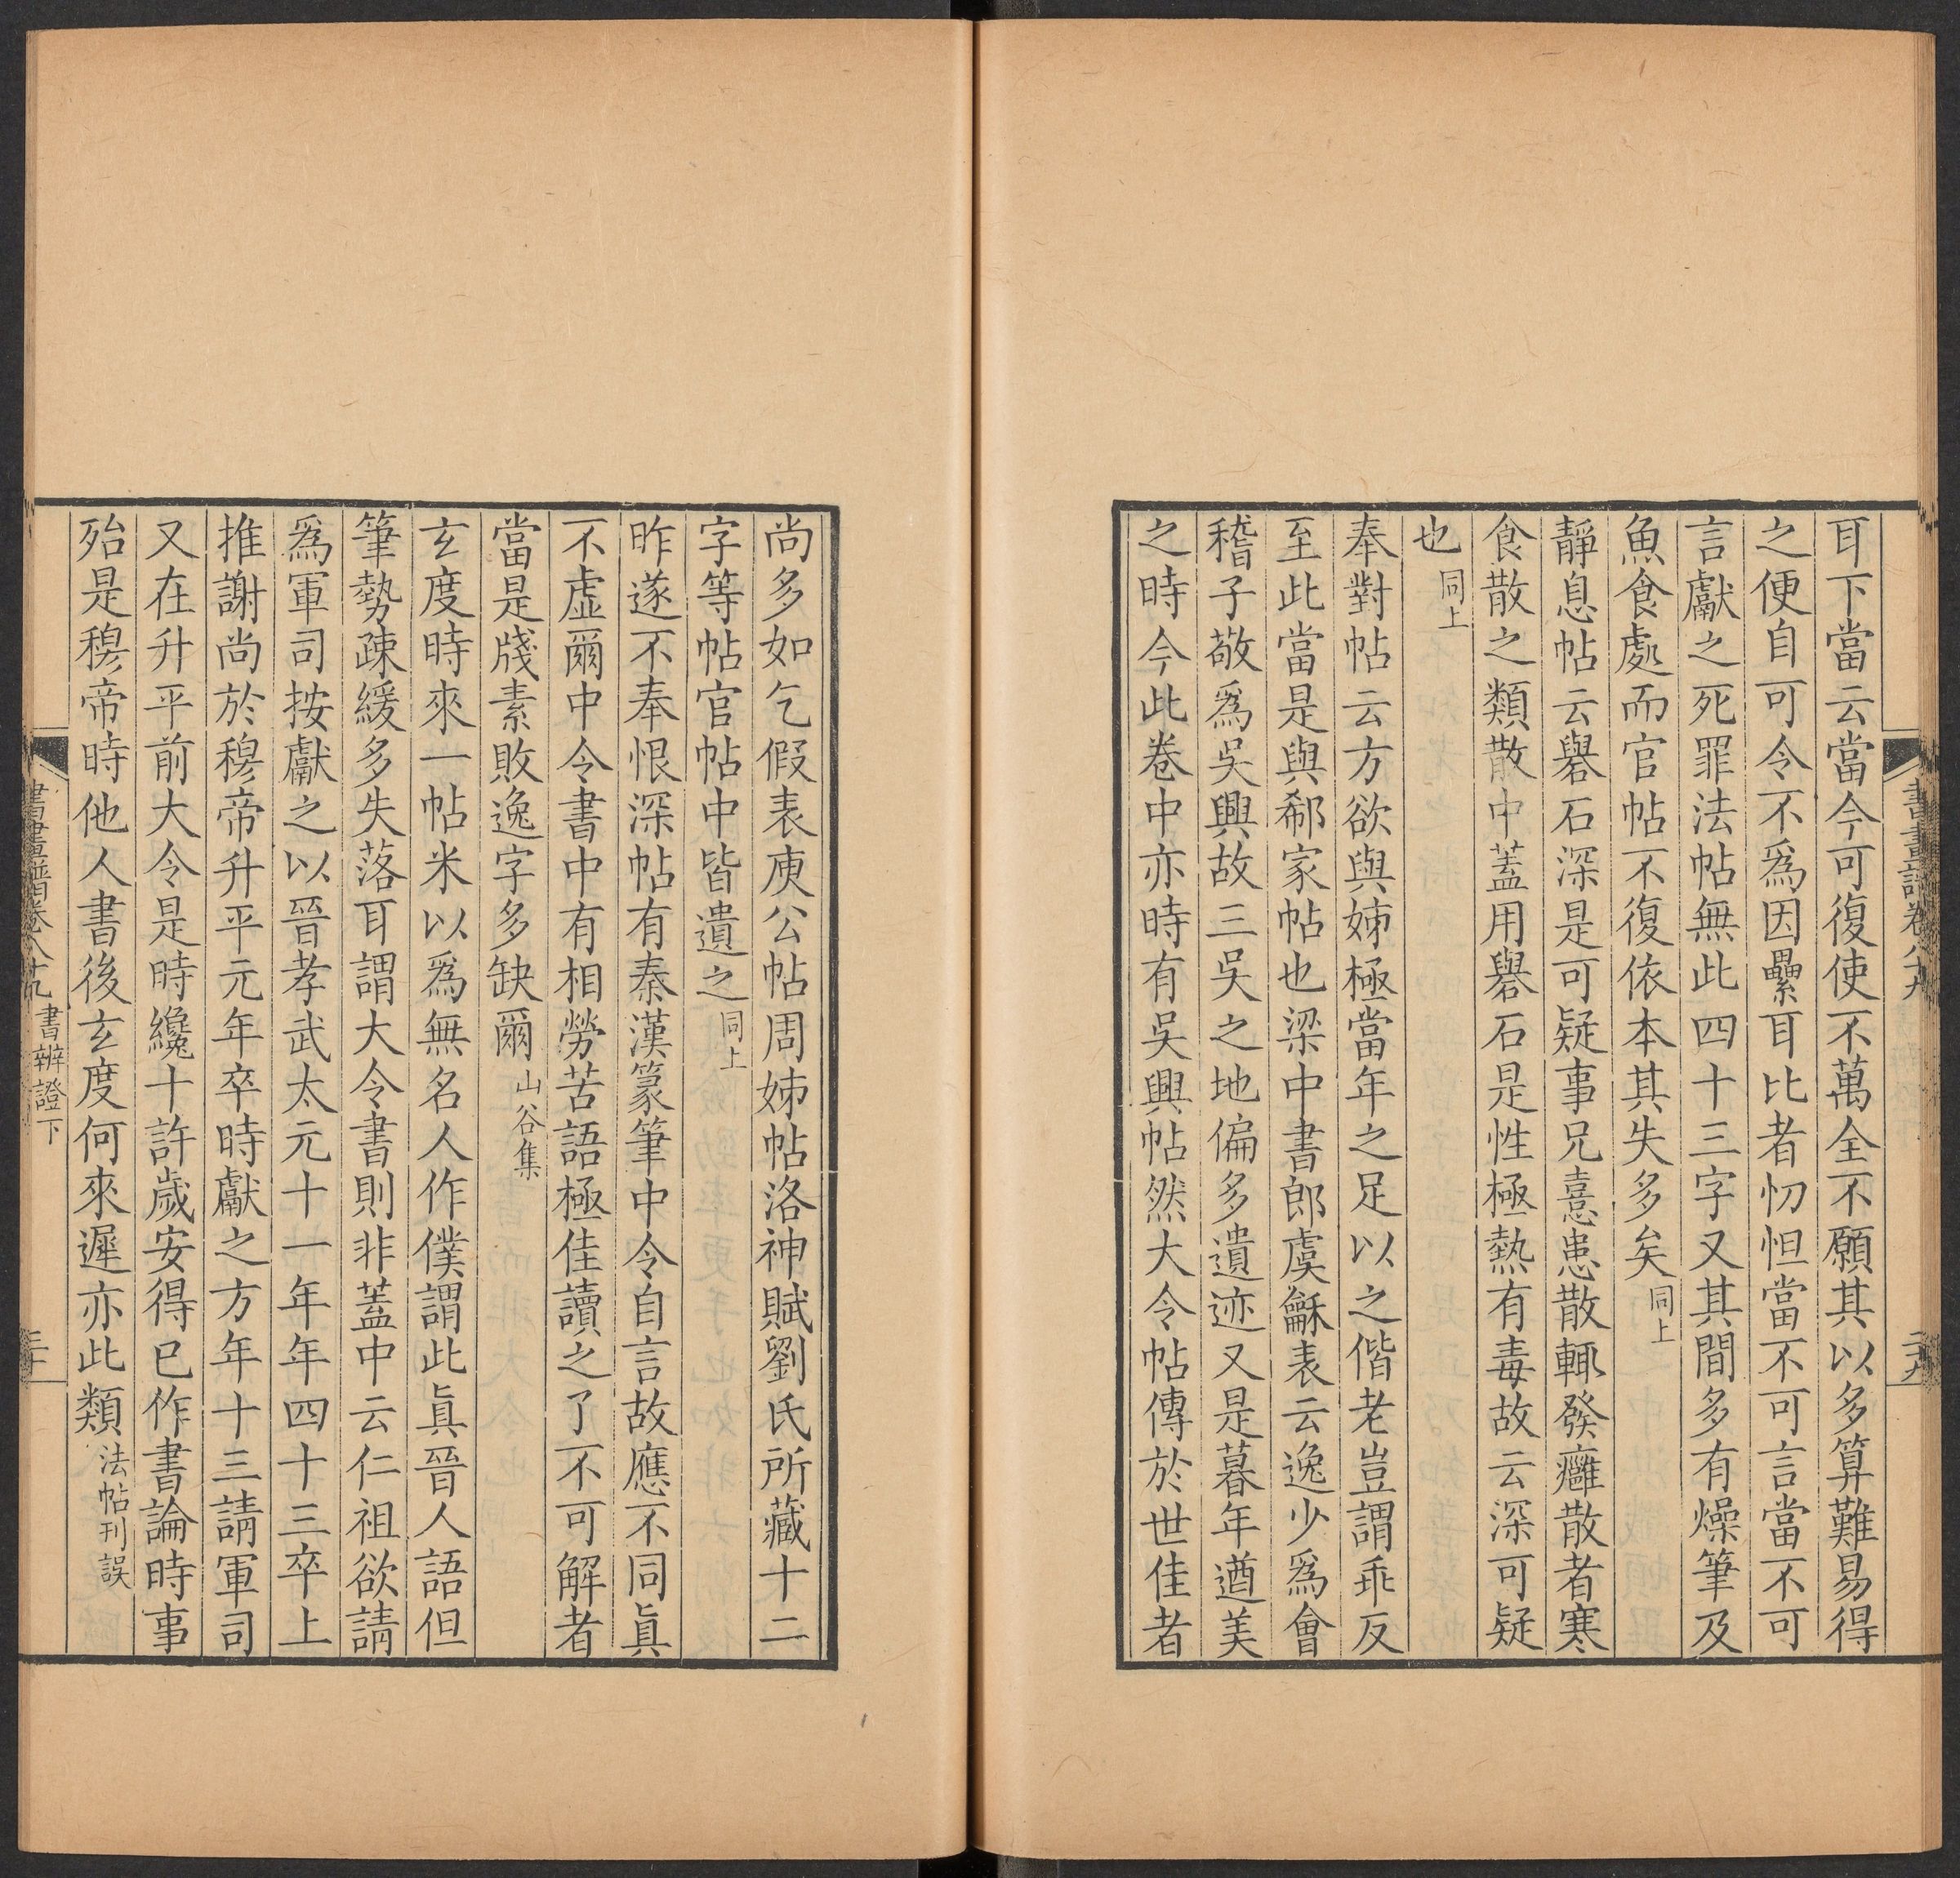 耳下當云當今可復使不萬全不願其以多算難易得
之便自可令不爲因纍耳比者忉怛當不可言當不可
言獻之死罪法帖無此四十三字又其間多有燥筆及
魚食處而官帖不復依本其失多矣同上
靜息帖云礜石深是可疑事兄憙患散輒發癰散者寒
食散之類散中蓋用礜石是性極熱有毒故云深可疑
也同上
奉對帖云方欲與姊極當年之足以之偕老豈謂乖反
至此當是與郗家帖也梁中書郎虞龢表云逸少爲會
稽子敬爲吳興故三吳之地偏多遺迹又是暮年遒美
之時今此卷中亦時有吳興帖然大令帖傳於世佳者
尚多如乞假表庾公帖周姊帖洛神賦劉氏所藏十二
字等帖官帖中皆遺之同上
昨遂不奉恨深帖有秦漢篆筆中令自言故應不同眞
不虛爾中令書中有相勞苦語極佳讀之了不可解者
當是牋素敗逸字多缺爾山谷集
玄度時來一帖米以爲無名人作僕謂此眞晉人語但
筆勢疎緩多失落耳謂大令書則非蓋中云仁祖欲請
爲軍司按獻之以晉孝武太元十一年年四十三卒上
推謝尚於穆帝升平元年卒時獻之方年十三請軍司
又在升平前大令是時纔十許歲安得已作書論時事
殆是穆帝時他人書後玄度何來遲亦此類法帖刊誤
書畫譜卷八十九 書辨證下